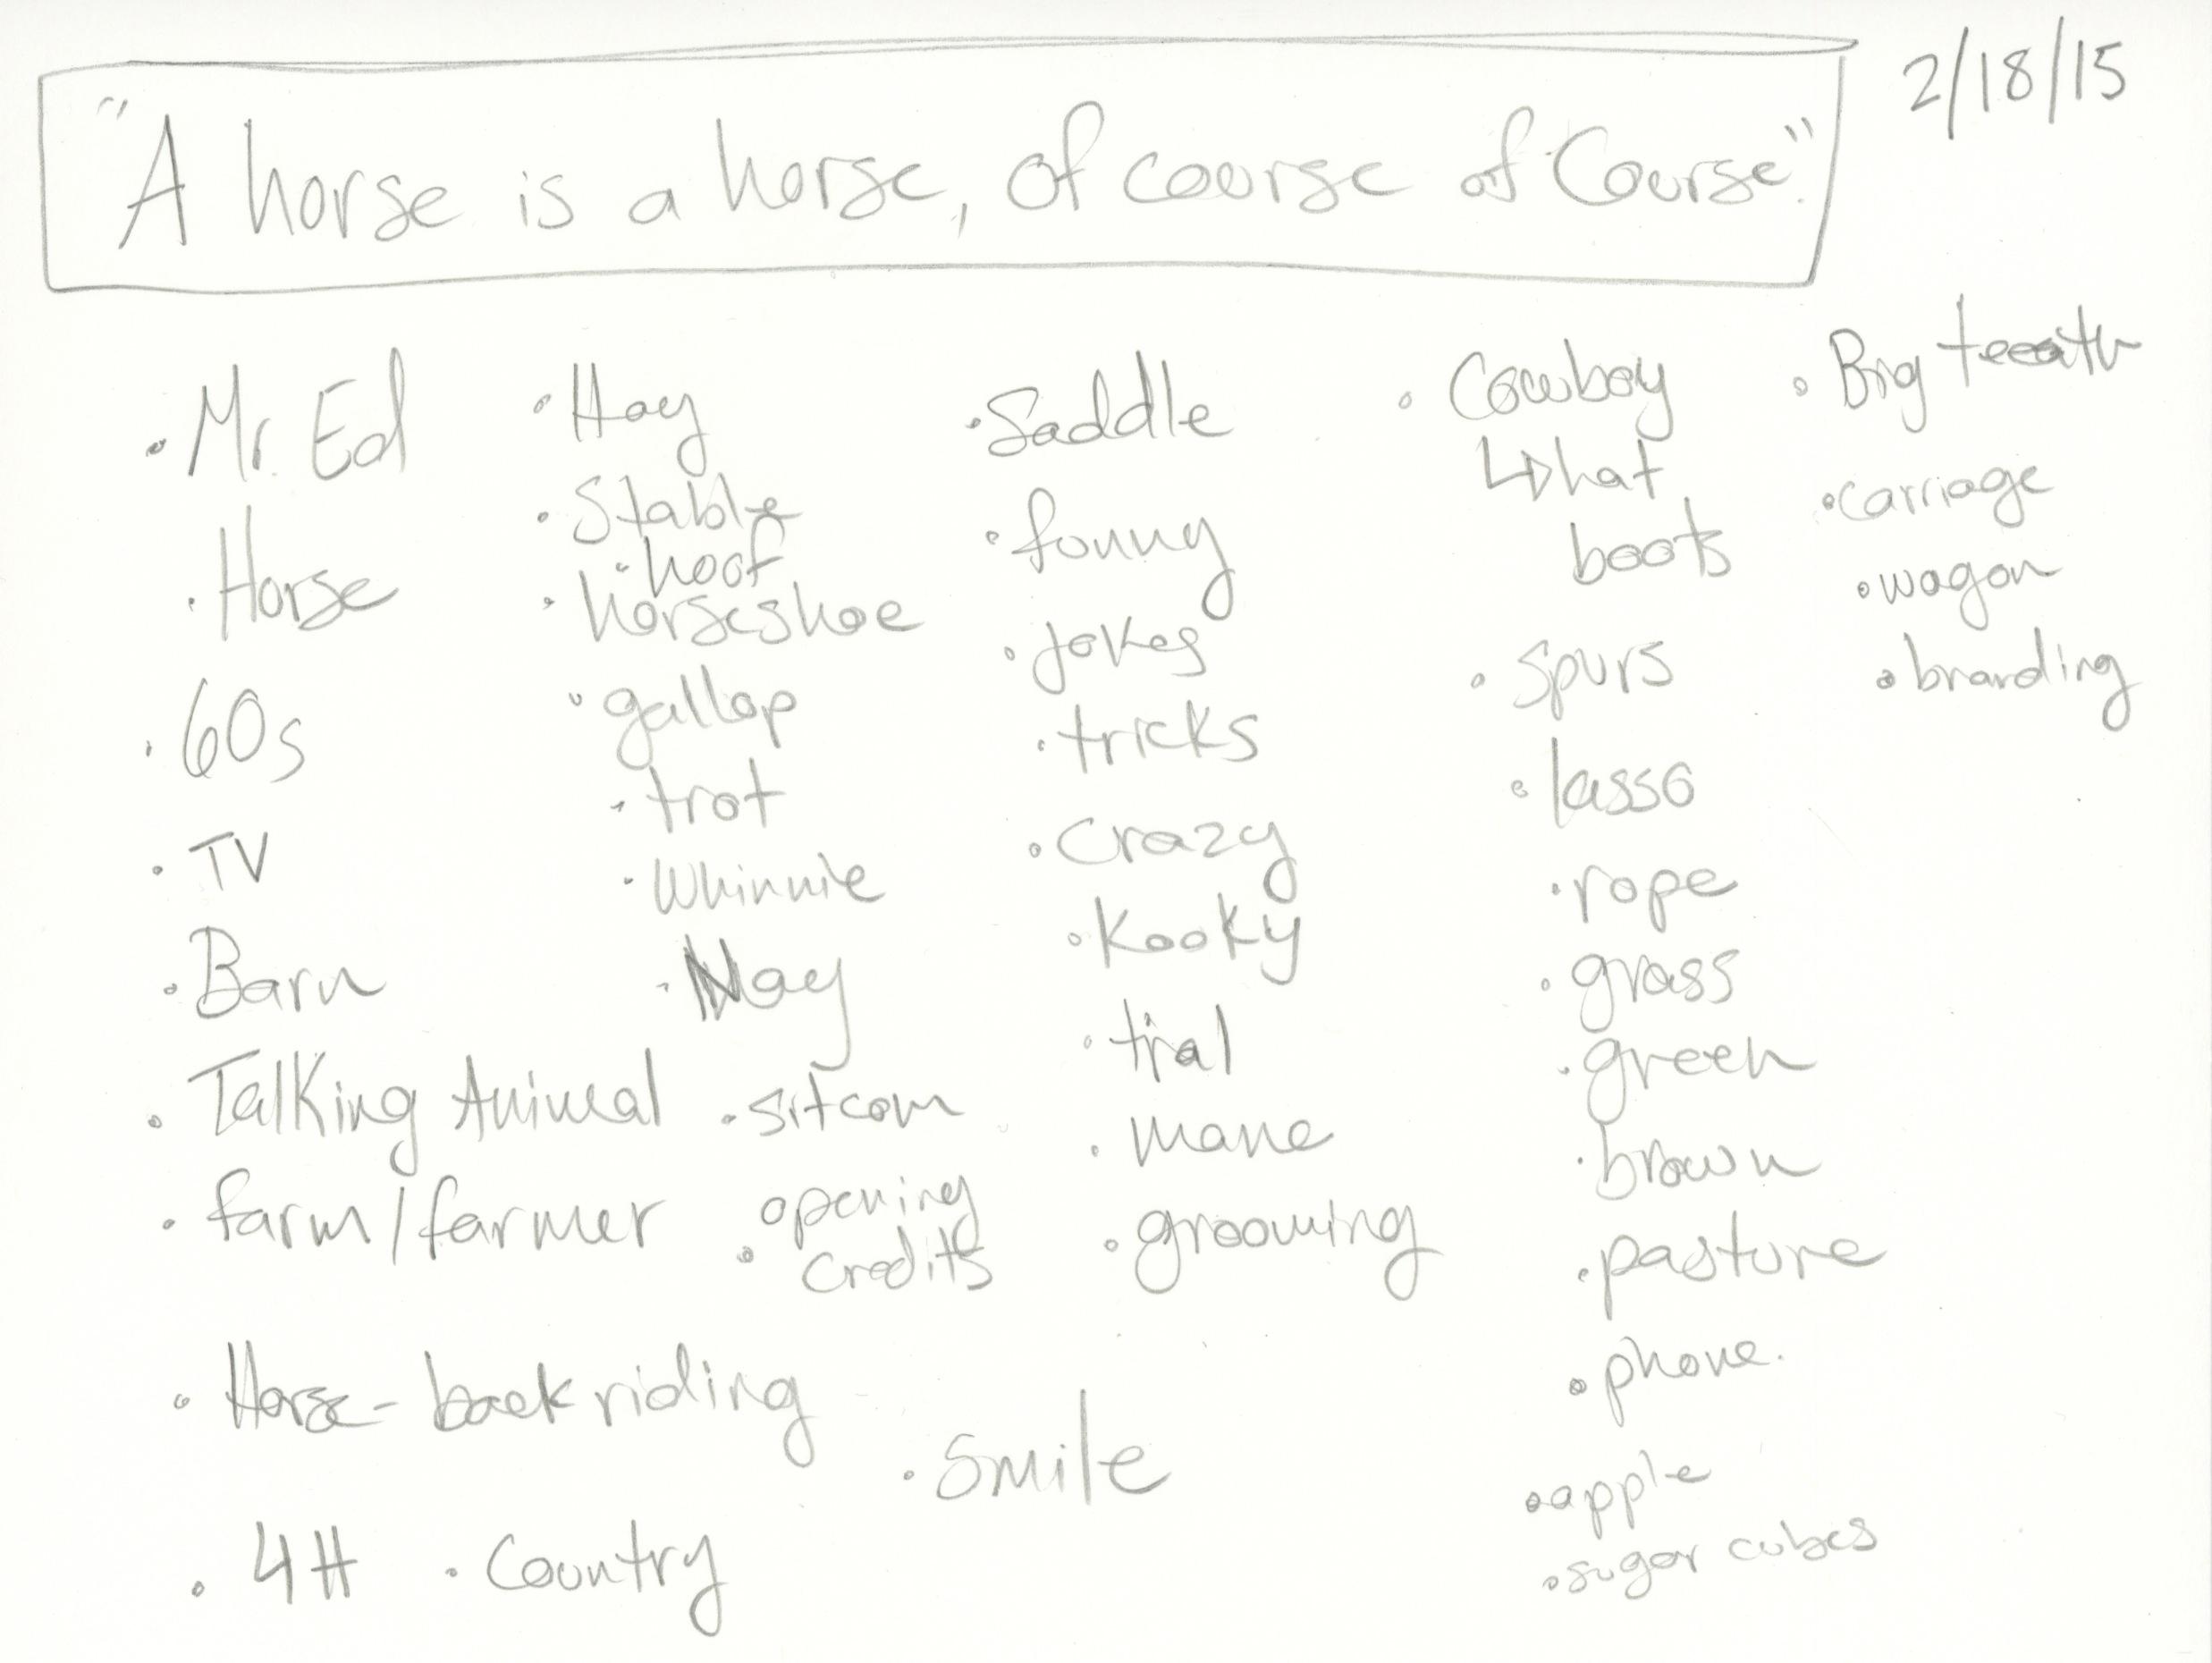 2/18/15
"A horse is a horse, of course of Course".
· Mr. Ed
· Horse
· 60s
· TV
· Barn
· Talking Animal
· farm/farmer
· Horse-back riding
· 4H
· Country
· Hay
· Stable
· hoof
· horseshoe
· gallop
· trot
· Whinnie
· Nay
· sitcom
· opening
credits
· Smile
· Saddle
· funny
· jokes
· tricks
· Crazy
· Kooky
· trial
· mane
· grooming
· Cowboy
↳ hat
boots
· spurs
· lasso
· rope
· grass
· green
· brown
· pasture
· phone.
· apple
· sugar cubes
· Big teeth
· carriage
· wagon
· branding